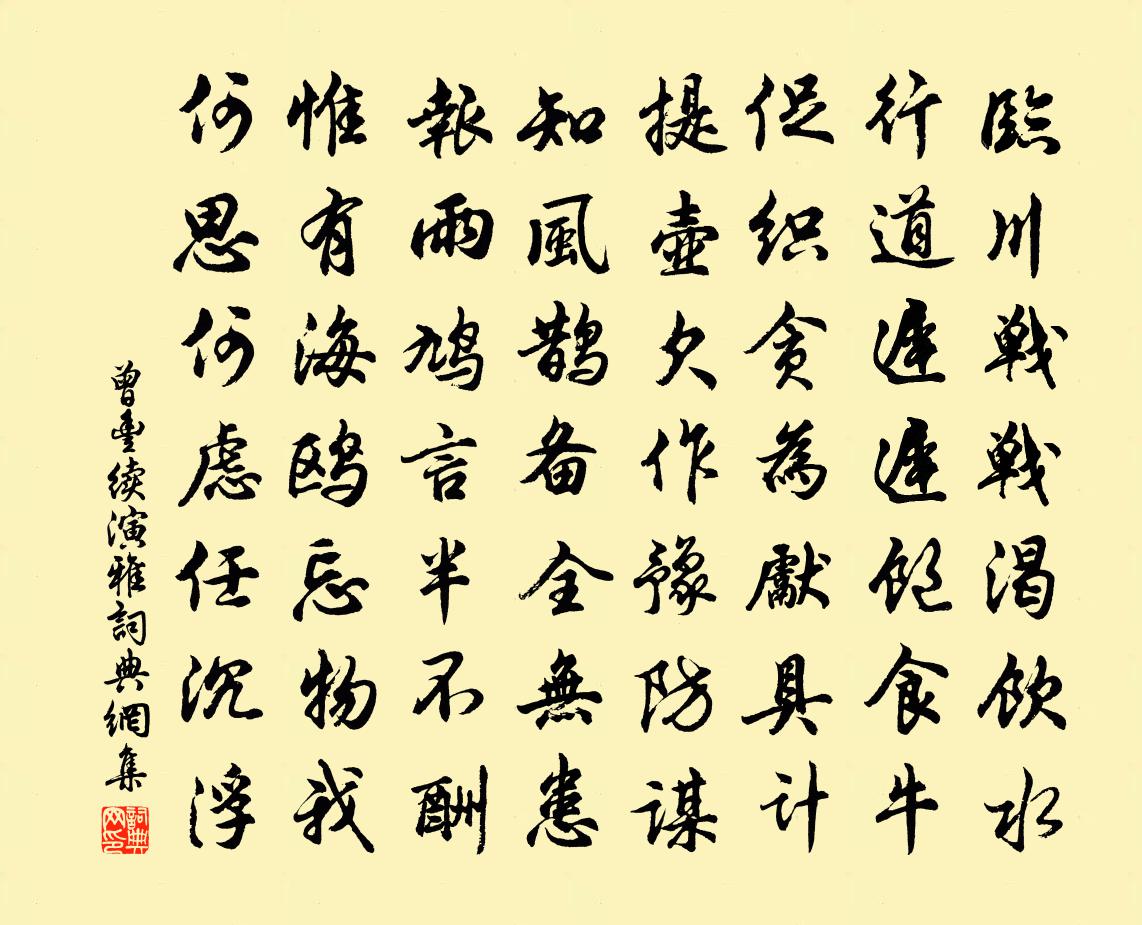 臨川戰戰渴飲水
行道遲遲飽食牛
促织貪為獻具计
提壺欠作豫防謀
知風鹊备全無患
報雨鳩言半不酬
惟有海鸥忘物我
何思何慮任沉浮
曾豊续演雅詞典網集
詞典
网印